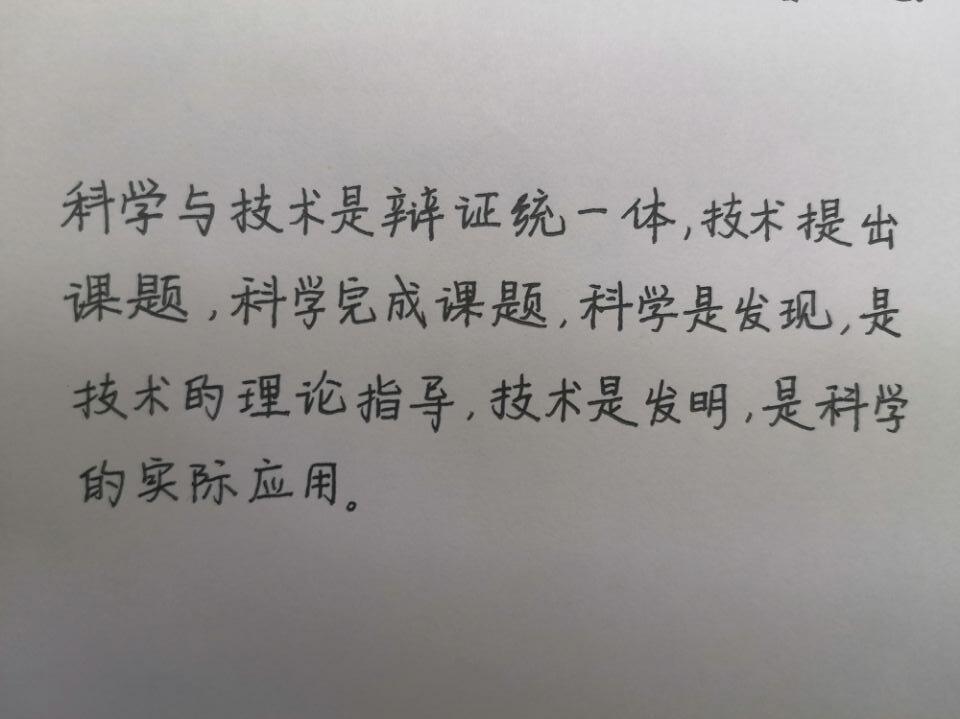 科学与技术是辩证统一体,技术提出
课题,科学完成课题,科学是发现,是
技术的理论指导,技术是发明,是科学
的实际应用。